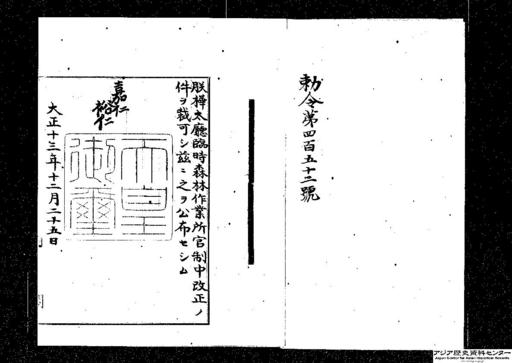 勅令第四百五十三號
朕樺太廳臨時森林作業所官制中改正ノ
件ヲ裁可シ茲ニ之ヲ公布セシム
嘉仁
裕仁
天皇
御璽
大正十三年十二月二十五日
アジア歴史資料センター
Japan Center for Asian Historical Records